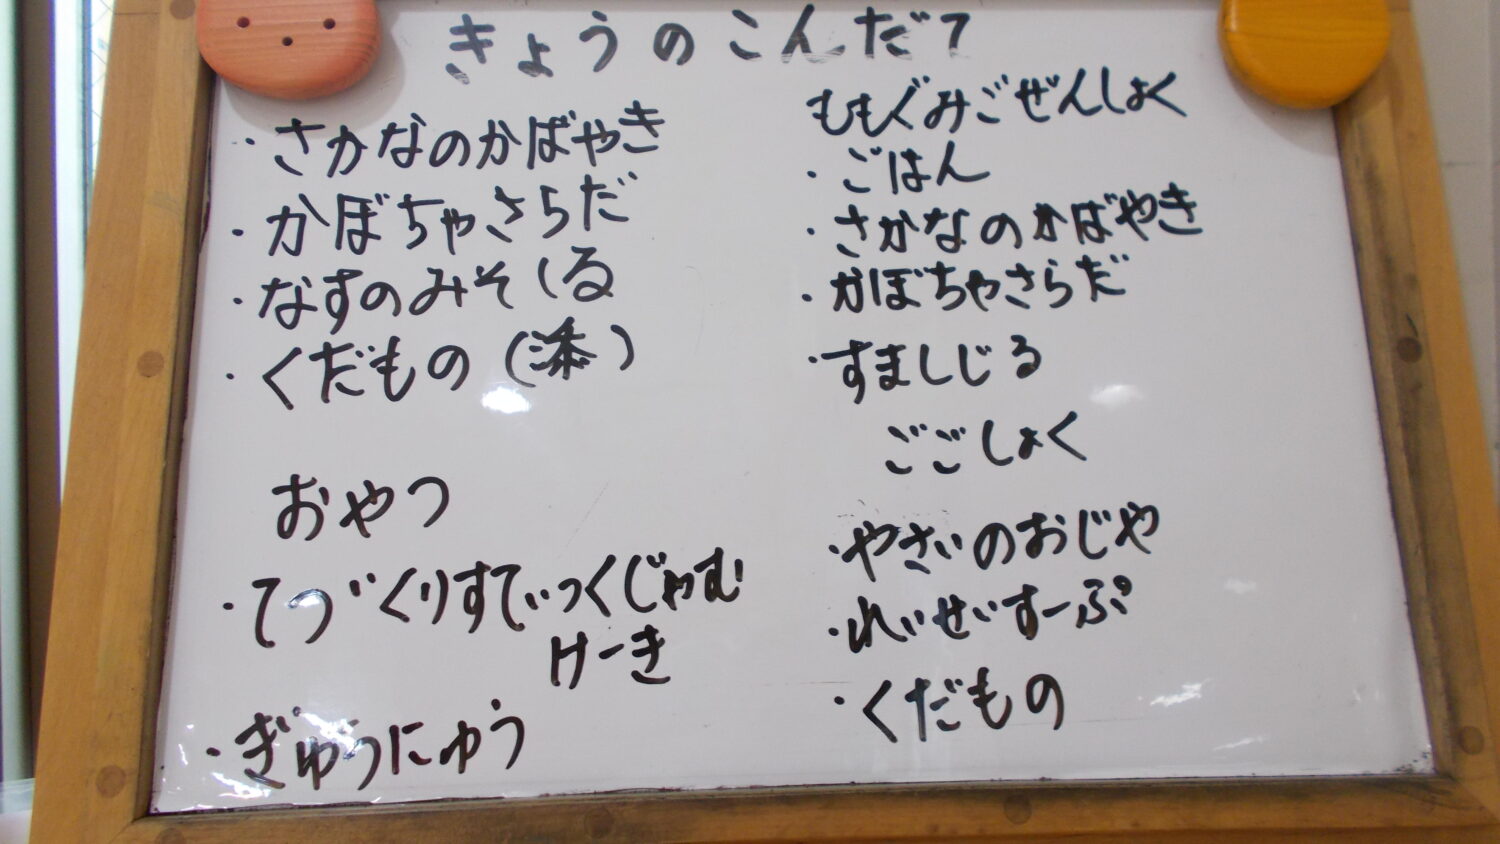 きょうのこんだて
・さかなのかばやき
・かぼちゃさらだ
・なすのみそしる
・くだもの
おやつ
・てづくりすてぃっくじゃむ
けーき
・ぎゅうにゅう
ももぐみごぜんしょく
・ごはん
・さかなのかばやき
・かぼちゃさらだ
・すましじる
ごごしょく
・やさいのおじや
・れいせいすーぷ
・くだもの